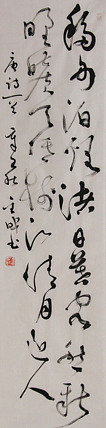 移舟泊烟渚日暮客愁新
野旷天低树江清月近人
唐诗一首
书